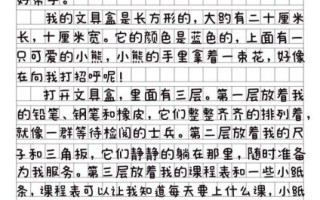 我的文具盒是长方形的，大约有二十厘米
长，十厘米宽。它的颜色是蓝色的，上面有一
只可爱的小熊，小熊的手里拿着一束花，好像
在向我打招呼呢！
打开文具盒，里面有三层。第一层放着我
的铅笔、钢笔和橡皮，它们整整齐齐的排列着，
就像一群等待检阅的士兵。第二层放着我的尺
子和三角板，它们静静的躺在那里，随时准备
为我服务。第三层放着我的课程表和一些小纸
条，课程表可以让我知道每天要上什么课，小纸